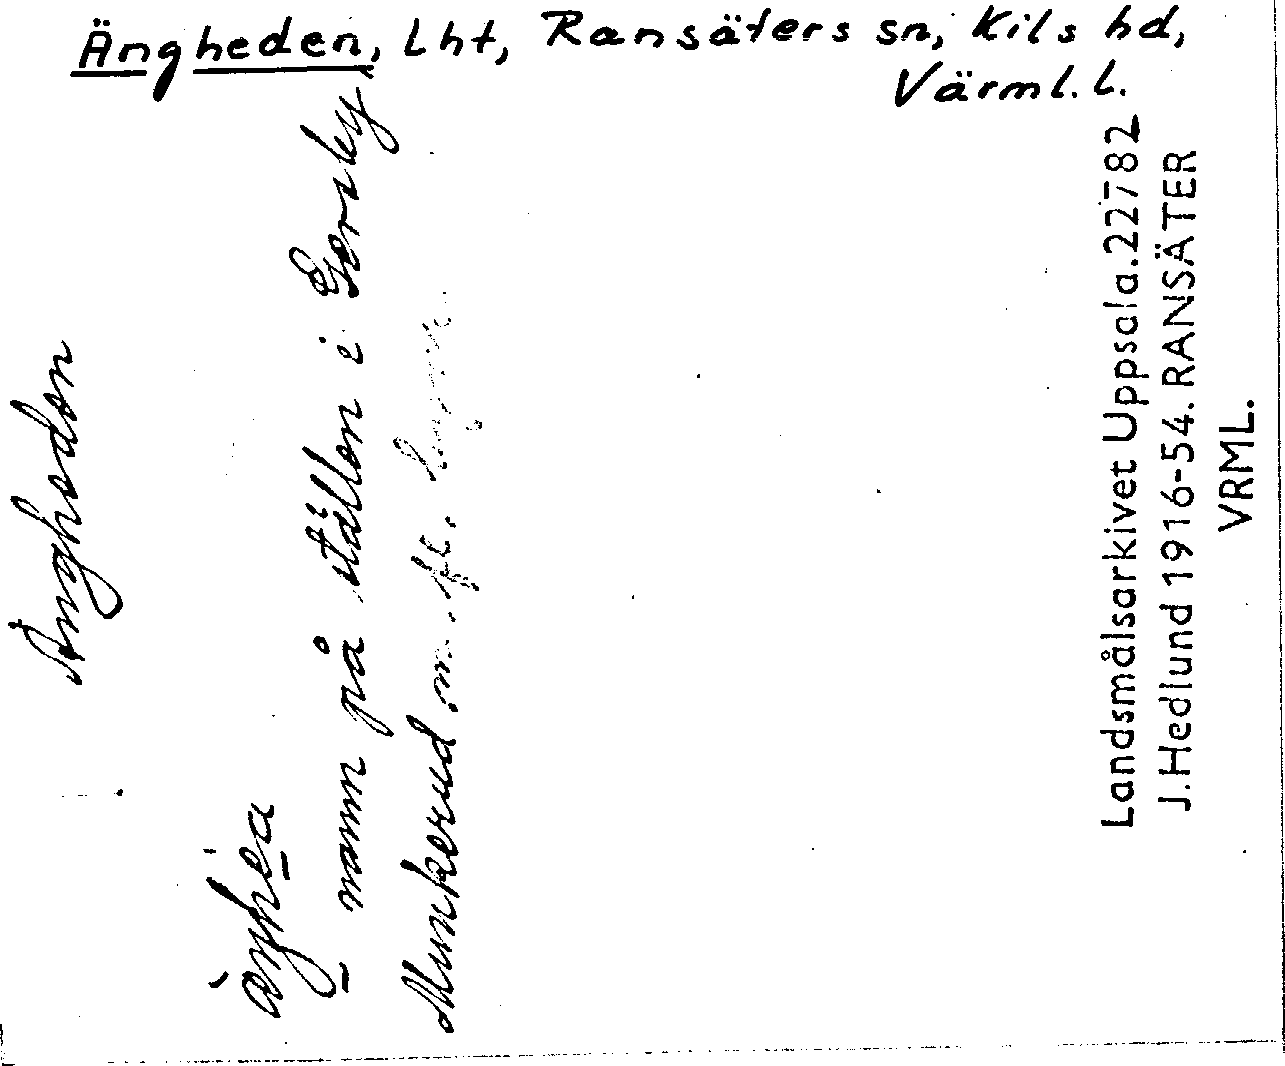 Ängheden, Lht, Ransäters sn, Kils hd,
Värml. l.
Ängheden
namn på ställen i Gersby,
Munkerud m. fl.
Landsmålsarkivet Uppsala. 22782
J. Hedlund 1916-54. RANSÄTER
VRML.